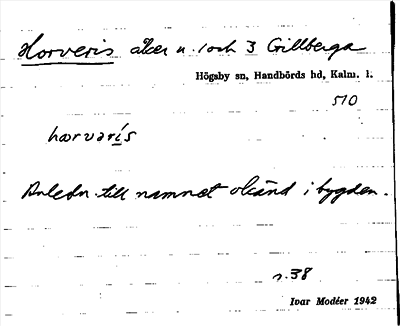 Horveris åker n. 1 och 3 Grillberga
Högsby sn, Handbörds hd, Kalm. l.
510
hærvarís
Anledn. till namnet okänd i bygden.
s. 38
Ivar Modéer 1942